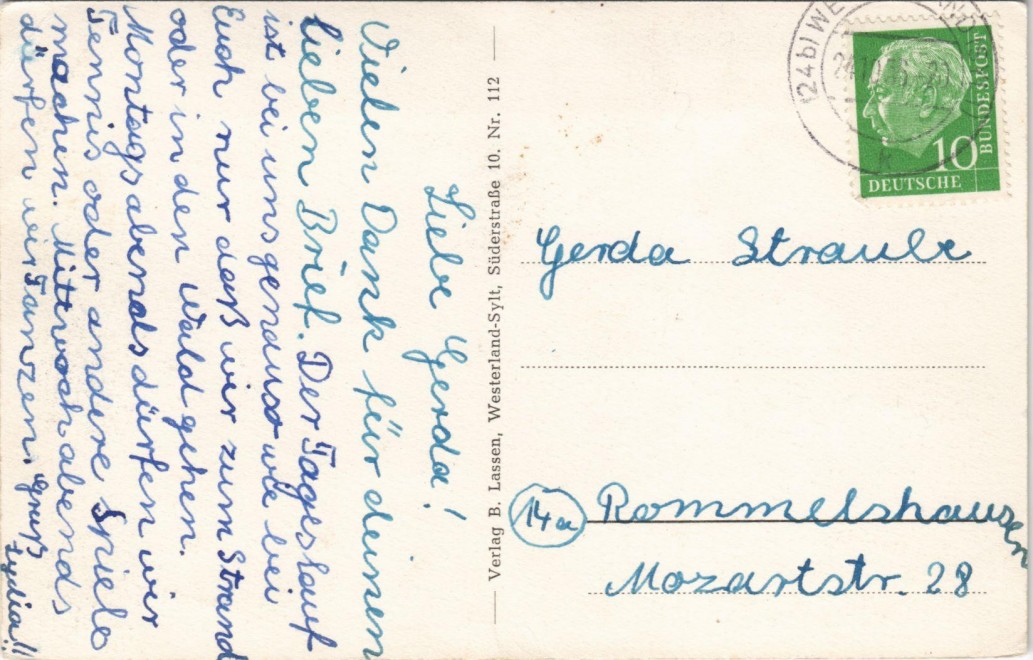 Liebe Gerda!
Vielen Dank für deinen
lieben Brief. Der Tageslauf
ist bei uns genauso wie bei
Euch nur daß wir zum Strand
oder in den Wald gehen.
Montagsabends dürfen wir
Tennis oder andere Spiele
machen. Mittwochabends
dürfen wir Tanzen. Gruß
Lydia!!
Verlag B. Lassen, Westerland-Sylt, Süderstraße 10. Nr. 112
(24b) WE
k
BUNDESPOST
10
DEUTSCHE
Gerda Straube
14a Rommelshausen
Mozartstr. 28